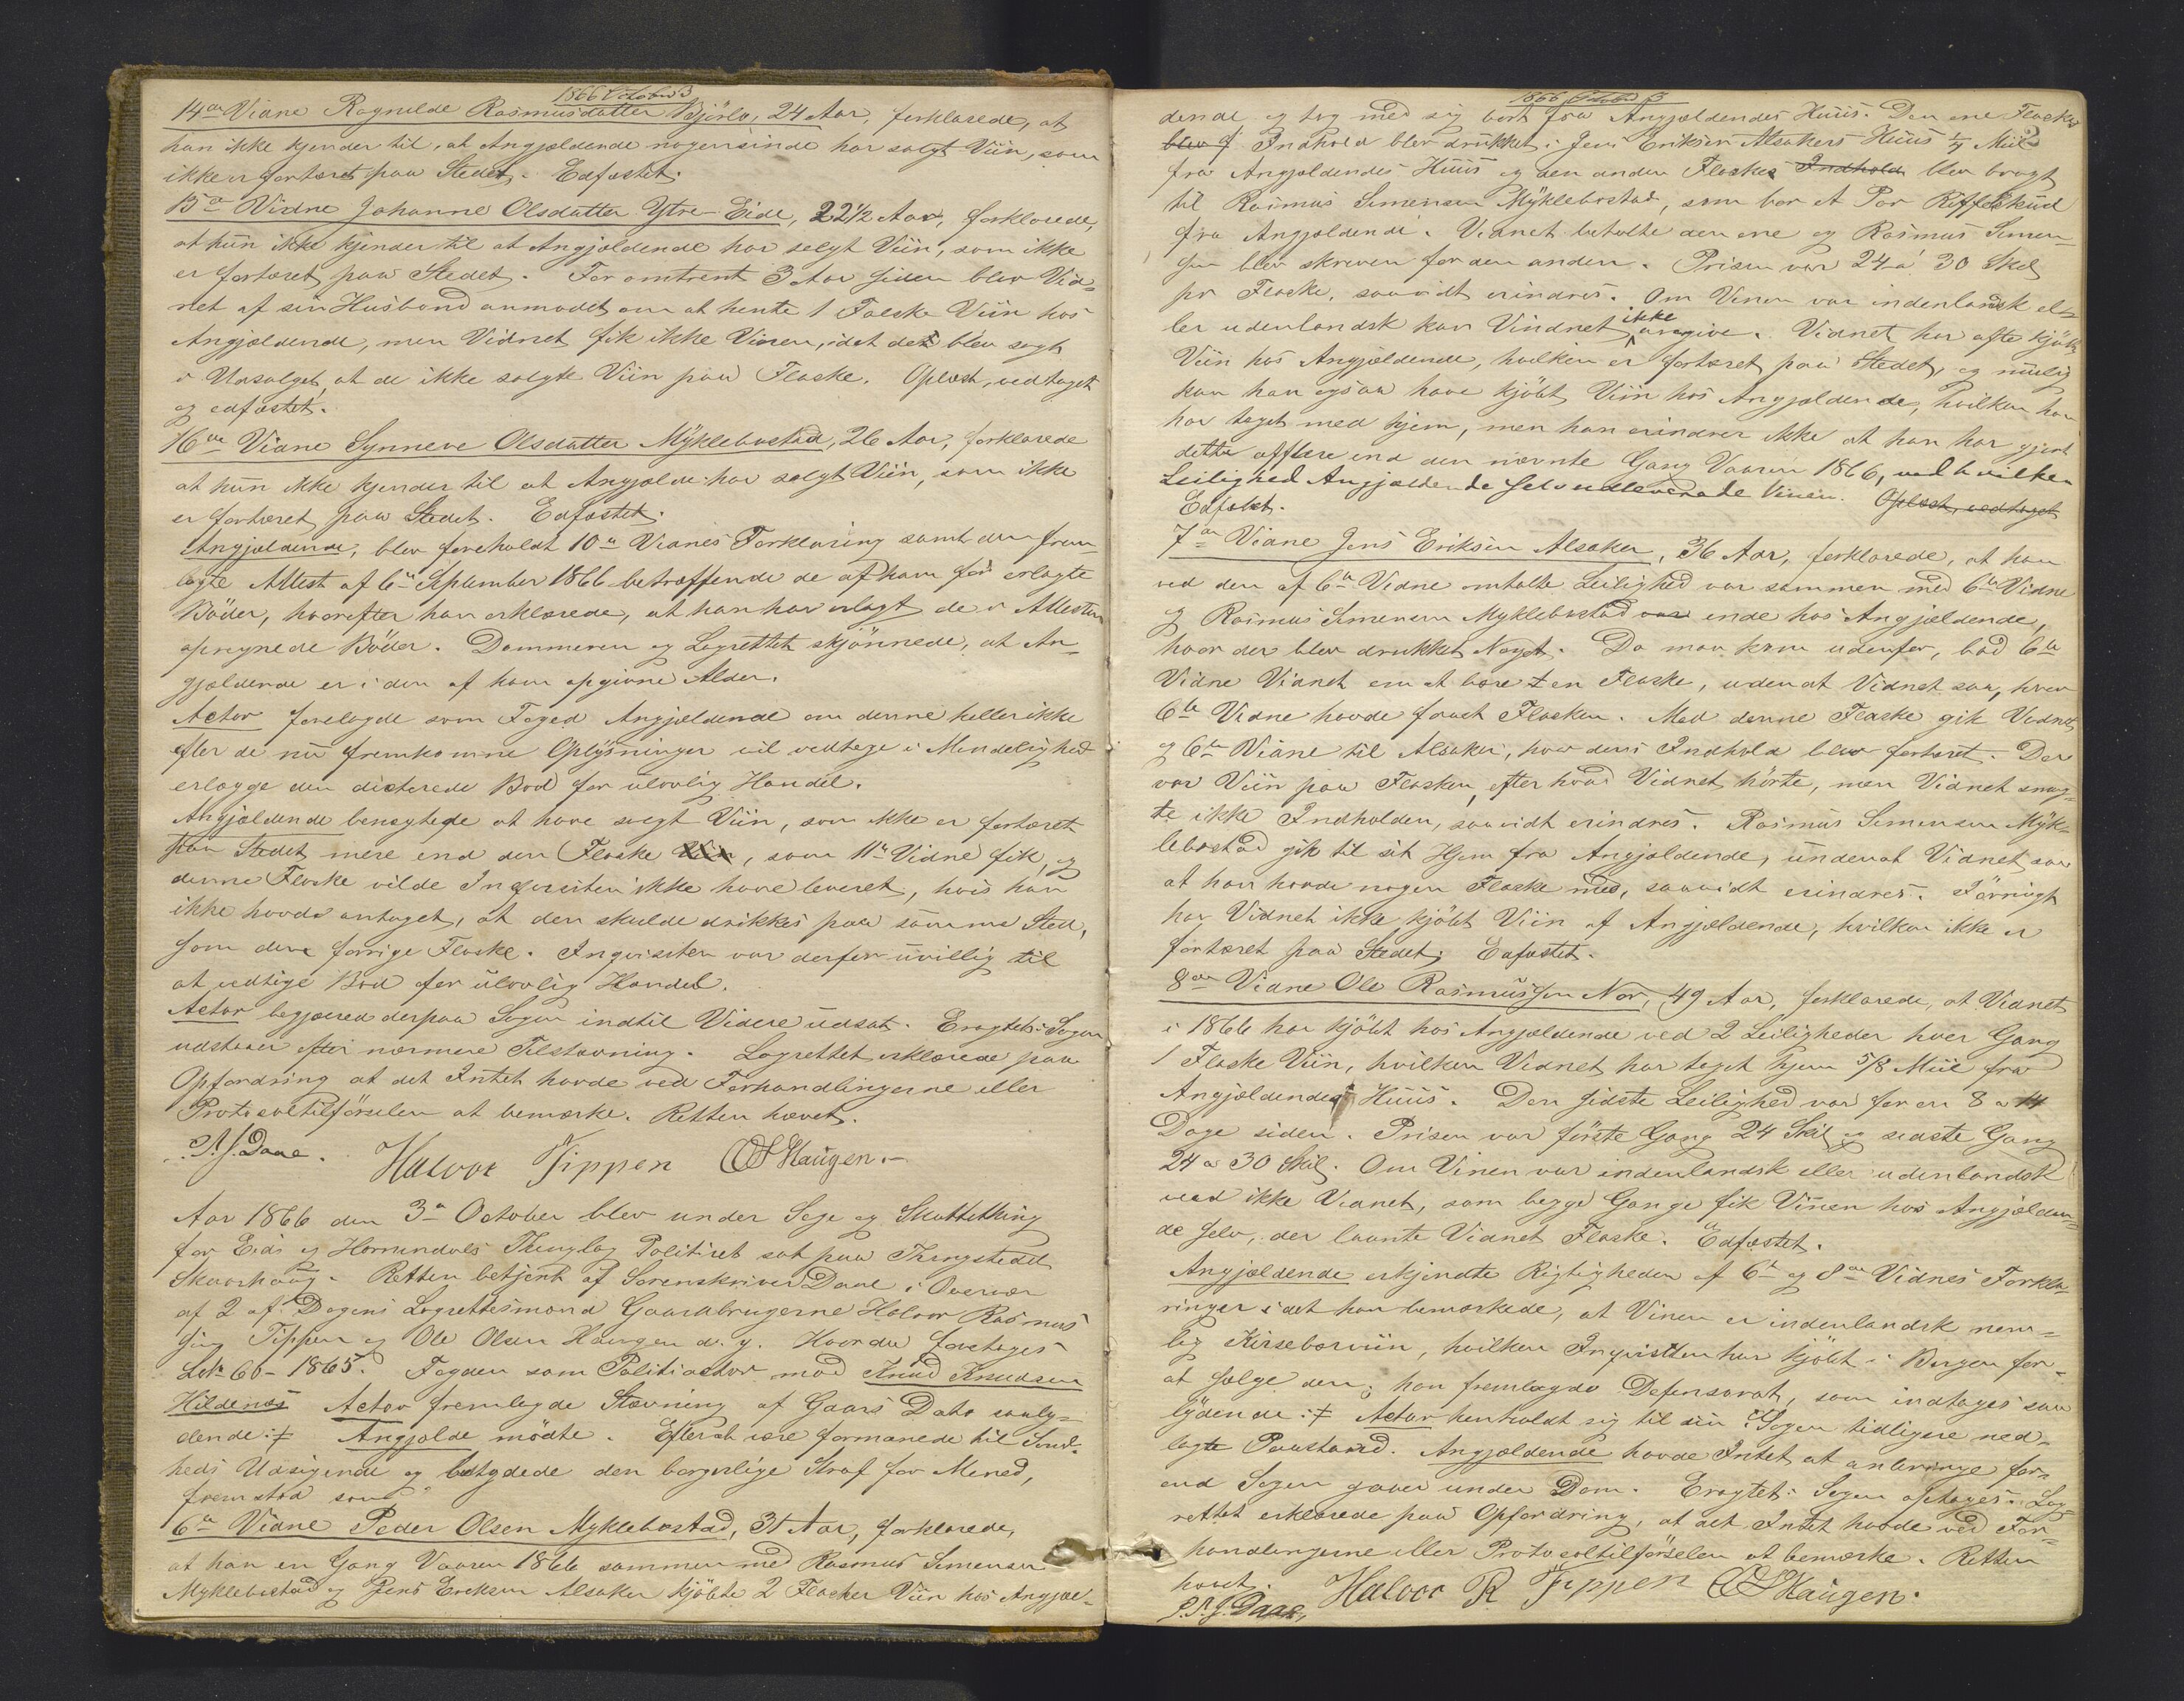 1866 October 3
14de Vidne Ragnilde Rasmusdatter Bjørlo, 24 Aar, forklarede, at
han ikke kjender til, at Angjældende nogensinde har solgt Viin, som
ikke er fortæret paa Stedet. Edfæstet.
15de Vidne Johanne Olsdatter Ytre-Eide, 22 1/2 Aar, forklarede,
at hun ikke kjender til at Angjældende har solgt Viin, som ikke
er fortæret paa Stedet. For omtrent 3 Aar siden blev Vid-
net af sin Husbond anmodet om at hente 1 Flaske Viin hos
Angjældende, men Vidnet fik ikke Vinen, idet det blev sagt
i Udsalget, at de ikke solgte Viin paa Flaske. Oplæst, vedtaget
og edfæstet.
16de Vidne Synneve Olsdatter Myklebostad, 26 Aar, forklarede
at hun ikke kjender til at Angjælde har solgt Viin, som ikke
er fortæret paa Stedet. Edfæstet.
Angjældende, blev foreholdt 10de Vidnes Forklaring samt den frem-
lagte Attest af 6te September 1866 betræffende de af ham før erlagte
Bøder, hvorefter han erklærede, at han har erlagt de i Attesten
opregnede Bøder. Dommeren og Lagrettet skjønnede, at An-
gjældende er i den af ham opgivne Alder.
Actor forelagde som Foged Angjældende om denne heller ikke
efter de nu fremkomne Oplysninger vil vedtage i Mindelighed
erlægge den dicterede Bod for ulovlig Handel.
Angjældende benegtede at have solgt Viin, som ikke er fortæret
paa Stedet mere end den Flaske Viin, som 11te Vidne fik, og
denne Flaske vilde Inqvisiten ikke have leveret, hvis han
ikke havde antaget, at den skulde drikkes paa samme Sted,
som den forrige Flaske. Inqvisiten var derfor uvillig til
at vedtage Bod for ulovlig Handel.
Actor begjæred derpaa Sagen indtil Videre udsat. Eragtet: Sagen
udstaaer efter nærmere Tilstævning. Lagrettet erklærede paa
Opfordring at det Intet havde ved Forhandlingerne eller
Protocoltilførselen at bemærke. Retten hævet.
P.A.J. Daae. Halvor Tippen OOHaugen.
Aar 1866 den 3de October blev under Sage og Skattething
for Eids og Hornindals Thinglag Politiret sat paa Thingstedet
Skaarhaug. Retten betjent af Sorenskriver Daae i Overvær
af 2 af Dagens Lagrettesmænd Gaardbrugerne Halvor Rasmus-
sen Tippen og Ole Olsen Haugen d. y. Hvorda foretages
Litr 60 - 1865. Fogden som Politiactor mod Knud Knudsen
Hildenæs Actor fremlagde Stævning af Gaars Dato saaly-
dende: ≠ Angjælde mødte. Efterat være formanede til Sand-
heds Udsigende og betydede den borgerlige Straf for Mened,
fremstod som
6te Vidne Peder Olsen Myklebostad, 31 Aar, forklarede,
at han en Gang Vaaren 1866 sammen med Rasmus Simensen
Myklebostad og Jens Eriksen Alsaker kjøbte 2 Flasker Viin hos Angjæl-
1866 October 3
dende og tog med sig bort fra Angjældendes Huus. Den ene Flaskes
blev f Indhold blev drukket i Jens Eriksen Alsakers Huus 1/4 Miil
fra Angjældendes Huus og den anden Flaskes Indhold blev bragt
til Rasmus Simensen Myklebostad, som bor et Par Riffelskud
fra Angjældende. Vidnet betalte den ene og Rasmus Simen-
sen blev skreven for den anden. Prisen var 24 a 30 Skil
pr Flaske, saavidt erindres. Om Vinen var indenlandsk el-
ler udenlandsk kan Vindnet ikke angive. Vidnet har ofte kjøbt
Viin hos Angjældende, hvilken er fortæret paa Stedet, og mulig
kan han ogsaa have kjøbt Viin hos Angjældende, hvilken han
har taget med hjem, men han erindrer ikke at han har gjort
dette oftere end den nævnte Gang Vaaren 1866, ved hvilken
Leilighed Angjældende selv udleverede Vinen. Oplæst, vedtaget
Edfæstet.
7de Vidne Jens Eriksen Alsaker, 36 Aar, forklarede, at han
ved den af 6te Vidne omtalte Leilighed var sammen med 6te Vidne
og Rasmus Simensen Myklebostad var inde hos Angjældende,
hvor der blev drukket Noget. Da man kom udenfor, bad 6te
Vidne Vidnet om at bære 1 en Flaske, uden at Vidnet saa, hvor
6te Vidne havde faaet Flasken. Med denne Flaske gik Vidnet
og 6te Vidne til Alsaker, hvor dens Indhold blev fortæret. Der
var Viin paa Flasken, efter hvad Vidnet hørte, men Vidnet smag-
te ikke Indholden, saavidt erindres. Rasmus Simensen Myk-
lebostad gik til sit Hjem fra Angjældende, undenat Vidnet saa
at han havde nogen Flaske med, saavidt erindres. Forøvrigt
har Vidnet ikke kjøbt Viin af Angjældende, hvilken ikke er
fortæret paa Stedet. Edfæstet.
8de Vidne Ole Rasmussen Nor, 49 Aar, forklarede, at Vidnet
i 1866 har kjøbt hos Angjældende ved 2 Leiligheder hver Gang
1 Flaske Viin, hvilken Vidnet har taget hjem 5/8 Miil fra
Angjældendes Huus. Den sidste Leilighed var for en 8 a 14
Dage siden. Prisen var første Gang 24 Skil og sidste Gang
24 a 30 Skil. Om Vinen var indenlandsk eller udenlandsk
ved ikke Vidnet, som begge Gange fik Vinen hos Angjælden-
de selv, der laante Vidnet Flaske. Edfæstet.
Angjældende erkjendte Rigtigheden af 6te og 8de Vidnes Forkla-
ringer idet han bemærkede, at Vinen er indenlandsk nem-
lig Kirsebærviin, hvilken Inqvisitten har kjøbt i Bergen for
at sælge den; han fremlagde Defensorat, som indtages saa
lydende: ≠ Actor henholdt sig til sin i Sagen tidligere ned-
lagte Paastand. Angjældende havde Intet at anbringe for-
end Sagen gaaer under Dom. Eragtet: Sagen optages. Lag-
rettet erklærede paa Opfordring, at det Intet havde ved For-
handlingerne eller Protocoltilførselen at bemærke. Retten
hævet.
P.A.J. Daae, Halvor R Tippen OOHaugen.